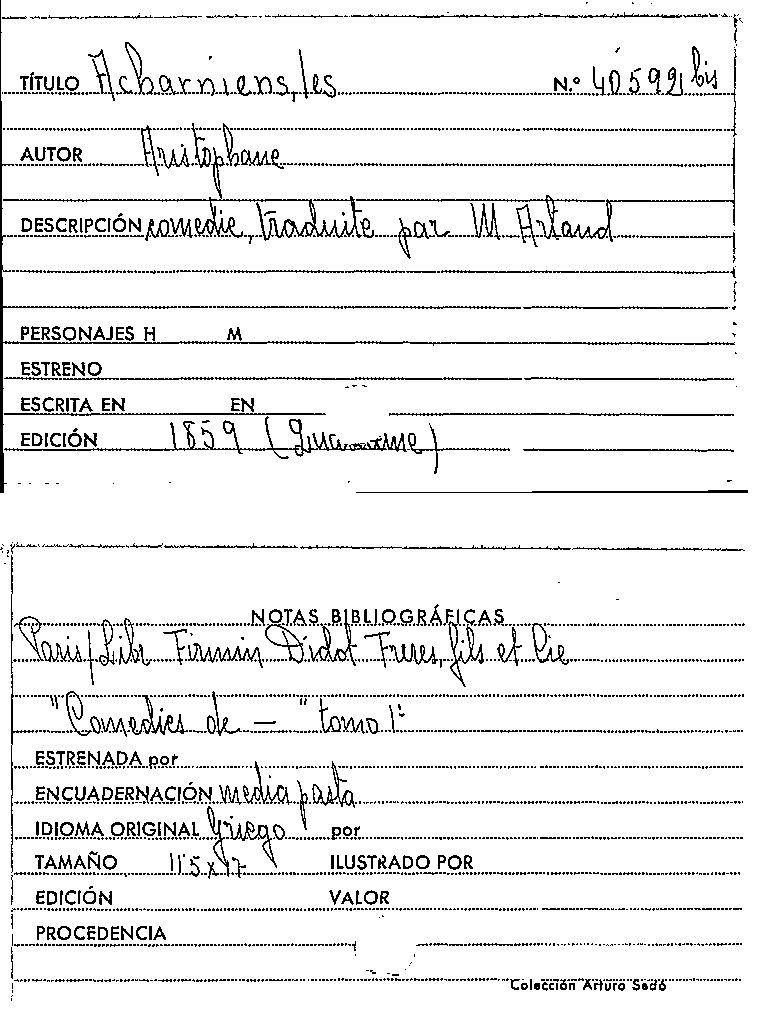 TÍTULO Acharniens, les N.º 405991 bis
AUTOR Aristophane
DESCRIPCIÓN comedie, traduite par M Artaud
PERSONAJES H M
ESTRENO
ESCRITA EN EN
EDICIÓN 1859 ( )
NOTAS BIBLIOGRÁFICAS
Paris/Libr Firmin Didot Freres, fils et Cie
"Comedies de — " tomo 1º
ESTRENADA por
ENCUADERNACIÓN media pasta
IDIOMA ORIGINAL Griego por
TAMAÑO 11'5 x 17 ILUSTRADO POR
EDICIÓN VALOR
PROCEDENCIA
Colección Arturo Sedó